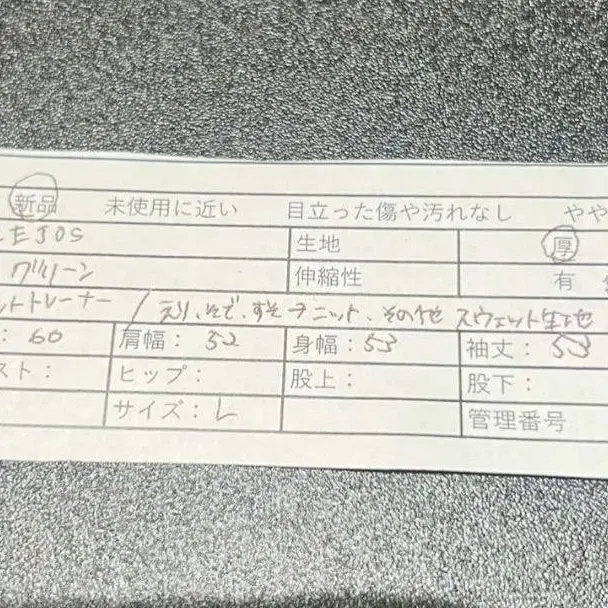 新品 未使用に近い 目立った傷や汚れなし やや
EJOS 生地 厚
グリーン 伸縮性 有
ットトレーナー / えり、そで、すそ→ニット、その他 スウェット生地
: 60 肩幅: 52 身幅: 53 袖丈: 53
スト: ヒップ: 股上: 股下:
サイズ: L 管理番号